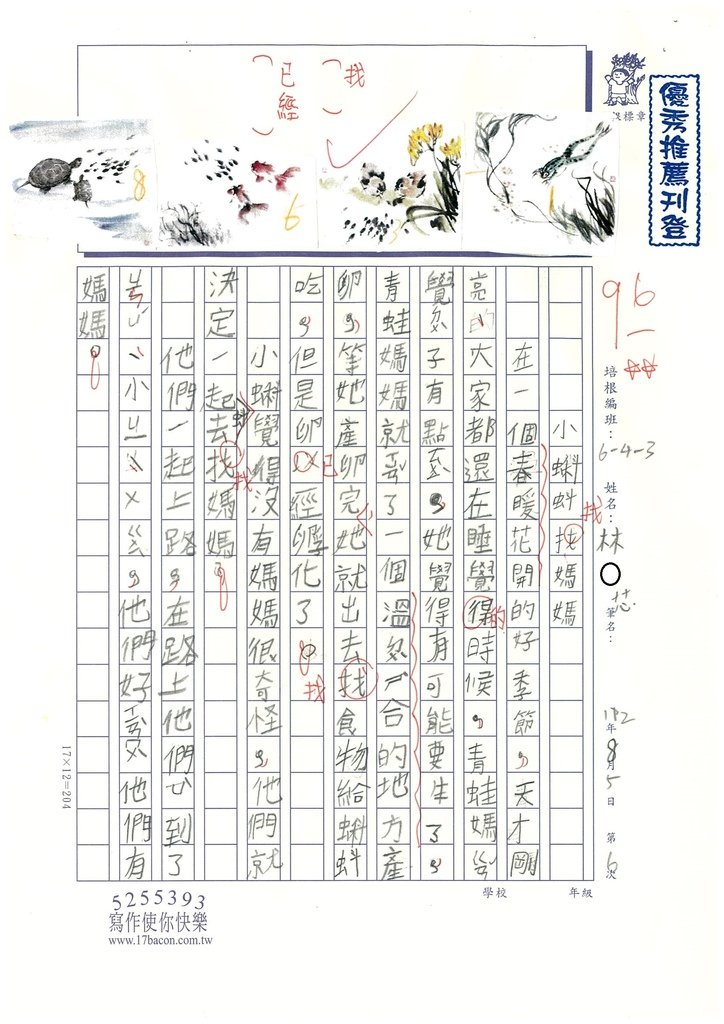 小蝌蚪找媽媽
在一個春暖花開的好季節,天才剛
亮的大家都還在睡覺得時候,青蛙媽
覺 子有點 ,她覺得有可能要生了,
青蛙媽媽就 了一個溫 合的地方產
卵,等她產卵完她就出去找食物給蝌蚪
吃,但是卵 經孵化了。
小蝌蚪覺得沒有媽媽很奇怪,他們就
決定一起去找媽媽。
他們一起上路,在路上他們 到了
小 ,他們好 他們有
媽媽。
(找)
(已經)
已
找
找
找
的
8
6
96
優秀推薦刊登
培根編班:6-4-3
姓名:林○芯
筆名:
112年8月5日 第6次
學校 年級
17×12=204
5255393
寫作使你快樂
www.17bacon.com.tw